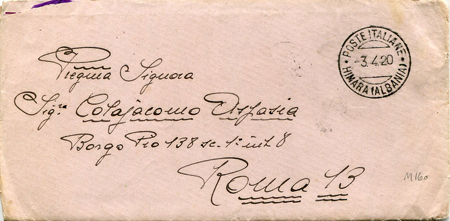 POSTE ITALIANE
-3.4.20
HIMARA (ALBANIA)
Pregma Signora
Sig.ra Colajacomo Aspasia
Borgo Pio 138 sc. 1ª int. 8
Roma 13
M160